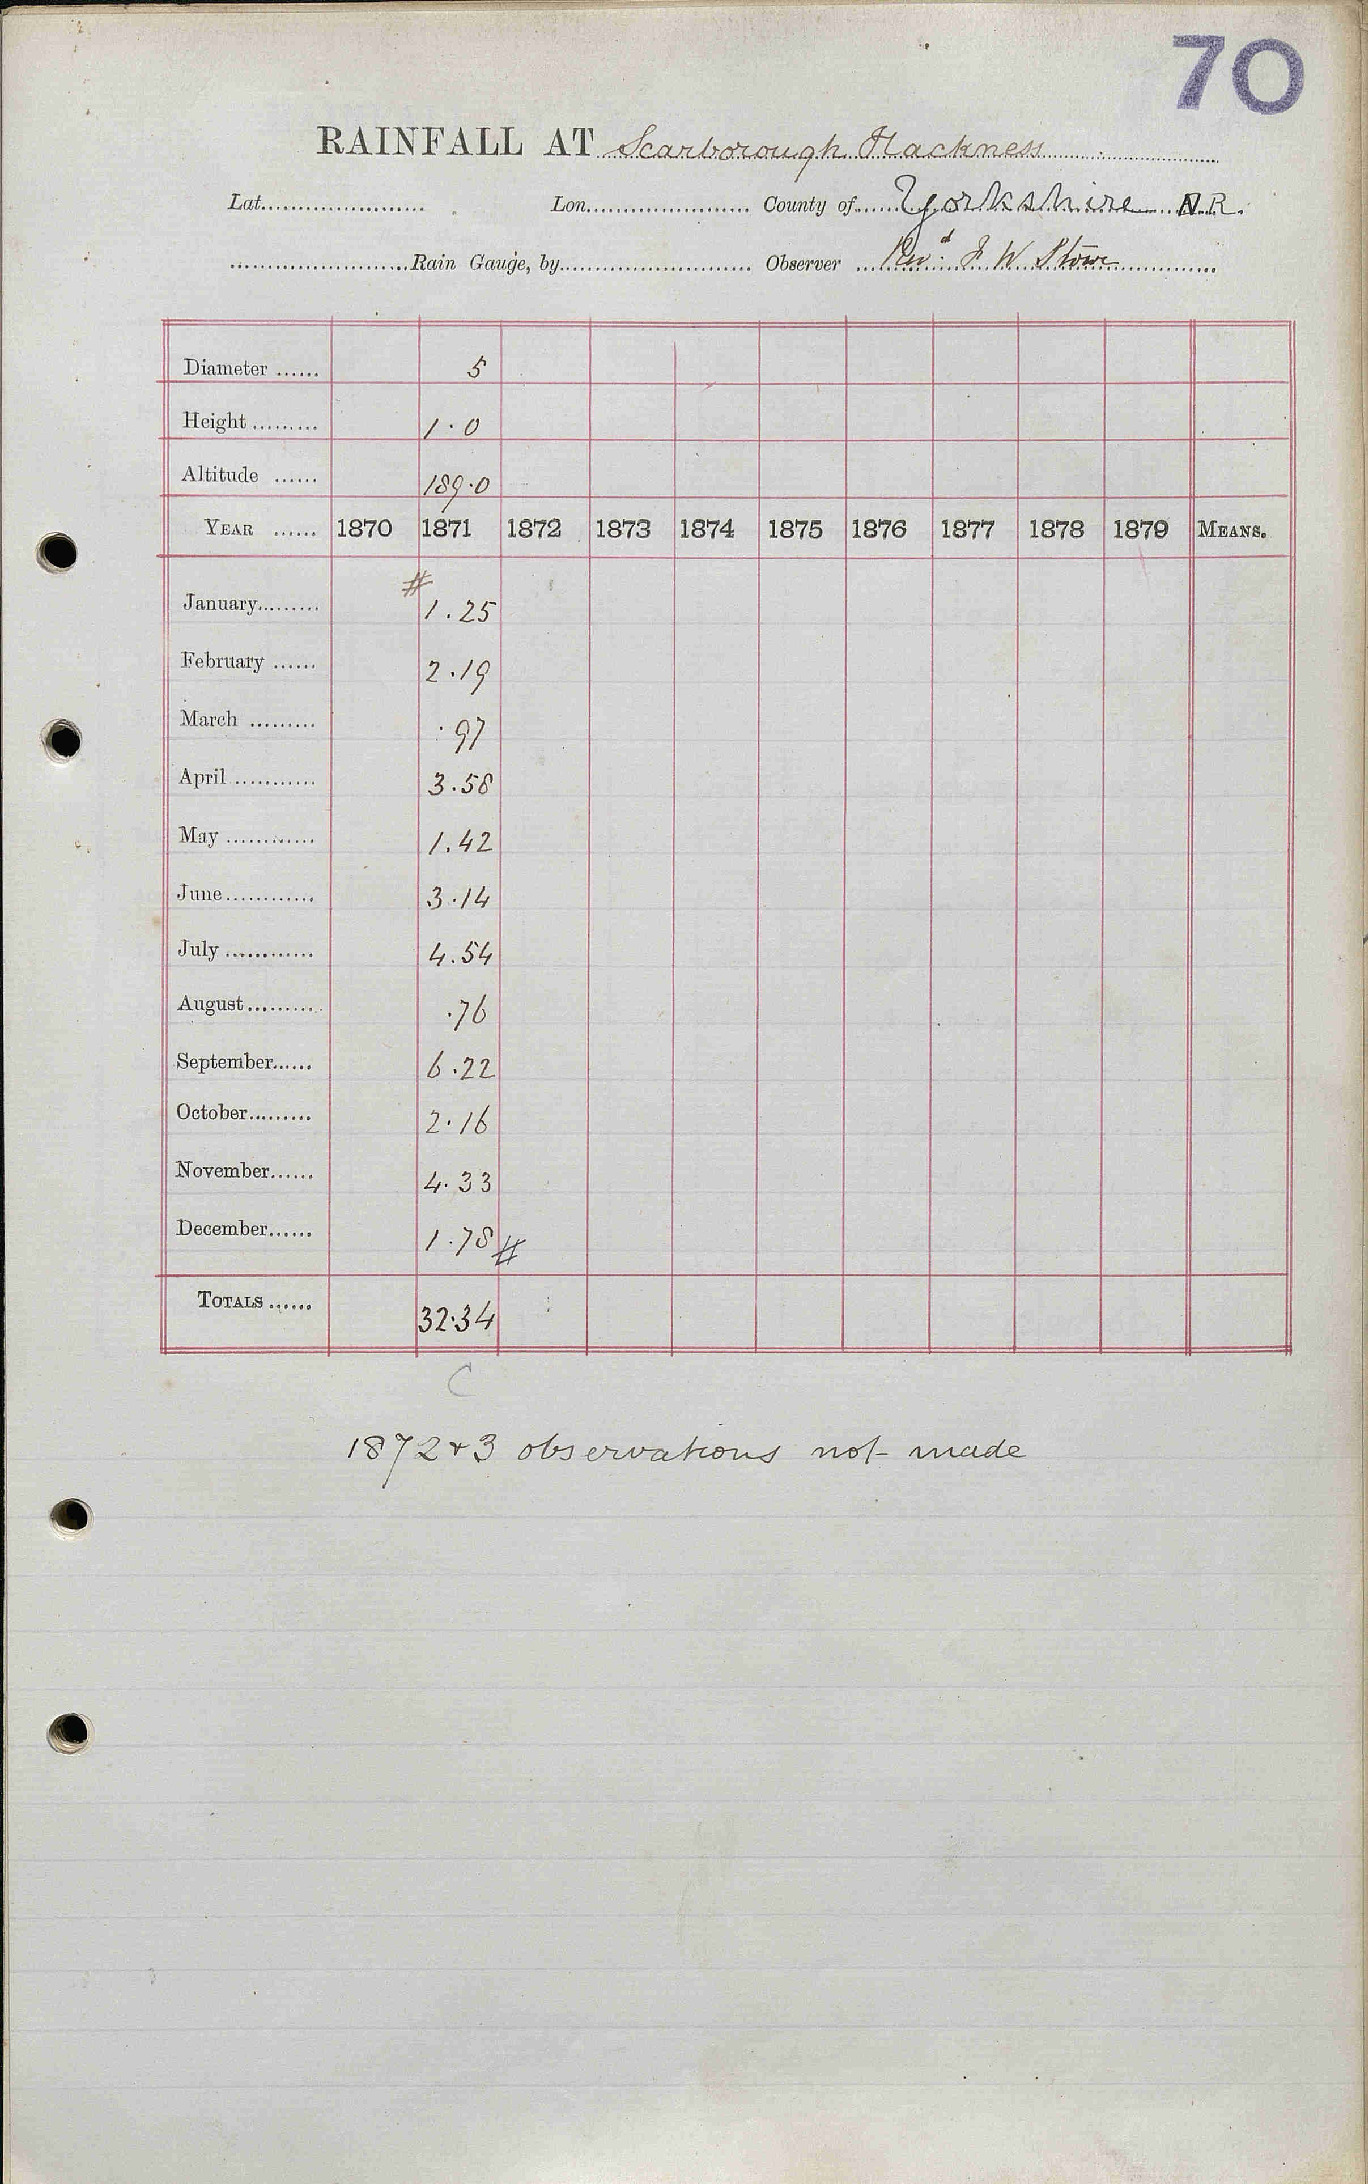 70
RAINFALL AT Scarborough Hackness
Lat. Lon. County of Yorkshire N.R.
Rain Gauge, by Observer Revd. J W Stowe
Diameter 5
Height 1.0
Altitude 189.0
YEAR 1870 1871 1872 1873 1874 1875 1876 1877 1878 1879 MEANS.
January # 1.25
February 2.19
March .97
April 3.58
May 1.42
June 3.14
July 4.54
August .76
September 6.22
October 2.16
November 4.33
December 1.78 #
TOTALS 32.34
C
1872 & 3 observations not made